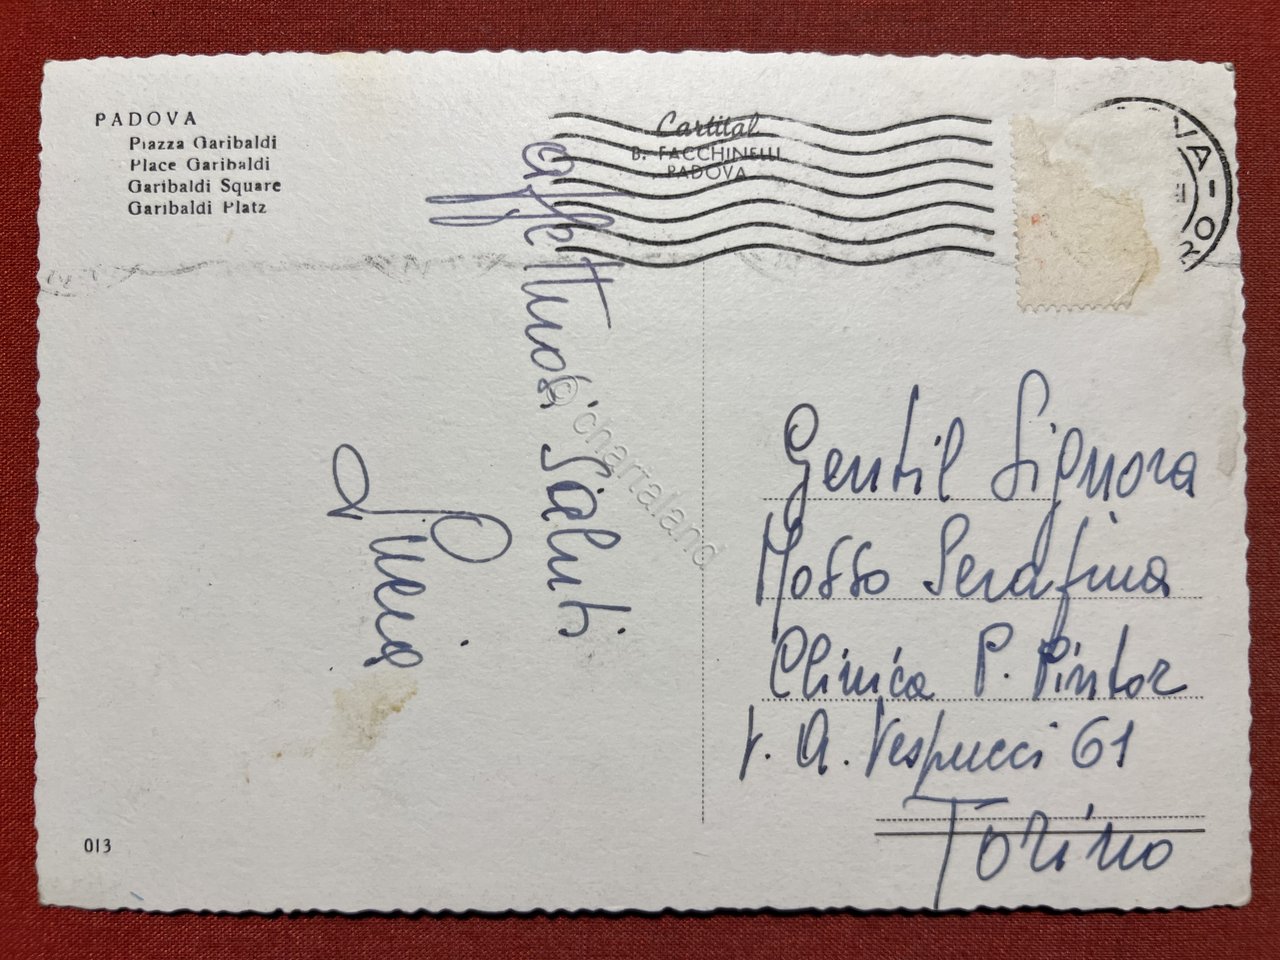 PADOVA
Piazza Garibaldi
Place Garibaldi
Garibaldi Square
Garibaldi Platz
Cartital
B. FACCHINELLI
PADOVA
affettuosi Saluti
© chartaland
Gentil Signora
Mosso Serafina
Clinica P. Pintor
V. A. Vespucci 61
Torino
013